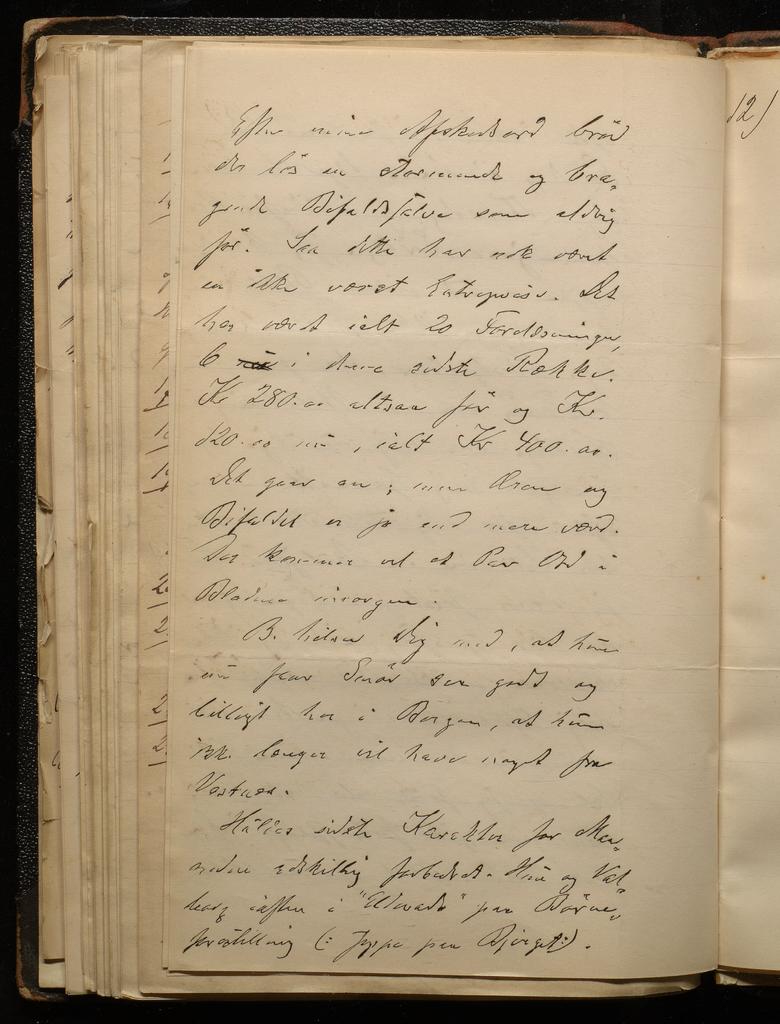 Efter mine Afskedsord brød
der løs en stormende og bra-
gende Bifaldssalve som aldrig
før. Saa dette har nok været
en ikke værst Entreprise. Det
har været ialt 20 Forelæsninger,
6 i denne sidste Række.
Kr 280.00 altsaa før og Kr.
120.00 nu, ialt Kr 400.00.
Det gaar an; men Æren og
Bifaldet er jo end mere værd.
Der kommer vel et Par Ord i
Bladene imorgen.
B. hilser Dig med, at hun
nu faar Smør saa godt og
billigt her i Bergen, at hun
ikke længer vil have noget fra
Vestnes.
Hildes sidste Karakter for Maa-
neden adskillig forbedret. Hun og Val-
borg iaften i "Eldorado" paa Børne-
forestilling (: Jeppe paa Bjerget:).
12)